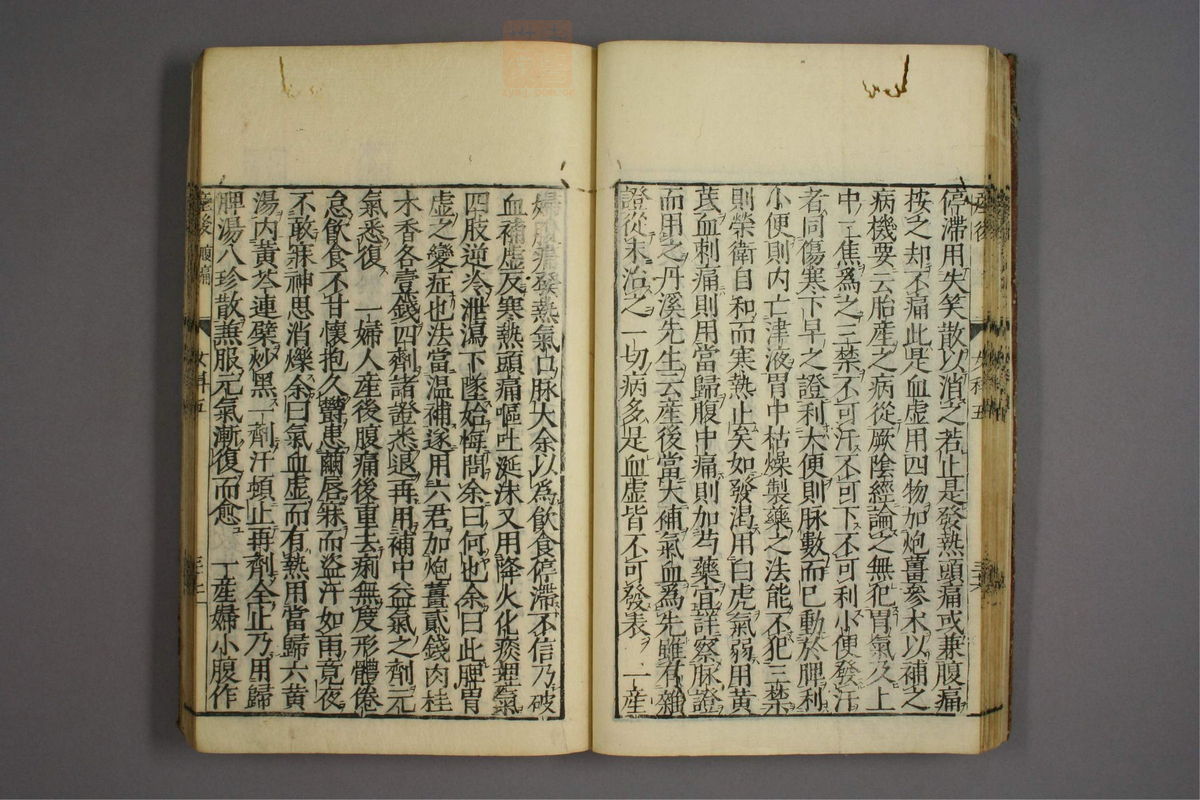 停滯用失笑散以消之若止是發熱頭痛或兼腹痛
按之却不痛此是血虛用四物加炮薑參木以補之
病機要云胎產之病從厥陰經論之無犯胃氣久上
中二焦爲之三禁不可汗不可下不可利小便發汗
者同傷寒下早之證利大便則脉數而已動於脾利
小便則内亡津液胃中枯燥製藥之法能不犯三禁
則榮衛自和而寒熱止矣如發渴用白虎氣弱用黄
芪血刺痛則用當歸腹中痛則加芍藥宜詳察脉證
而用之丹溪先生云產後當大補氣血爲先雖有雜
證從末治之一切病多是血虛皆不可發表 一產
婦腹痛發熱氣口脉大余以爲飲食停滯不信乃破
血補虛反寒熱頭痛嘔吐涎沫又用降火化痰理氣
四肢逆冷泄瀉下墜始悔問余曰何也余曰此脾胃
虛之變症也法當温補遂用六君加炮薑貳錢肉桂
木香各壹錢四劑諸證悉退再用補中益氣之劑元
氣悉復 一婦人產後腹痛後重去痢無度形體倦
怠飲食不甘懷抱久鬱患繭唇寐而盗汗如雨竟夜
不敢寐神思消爍余曰氣血虛而有熱用當歸六黄
湯内黄芩連蘗炒黑一劑汗頓止再劑全止乃用歸
脾湯八珍散兼服元氣漸復而愈 一產婦小腹作
產後 腹痛 女科五